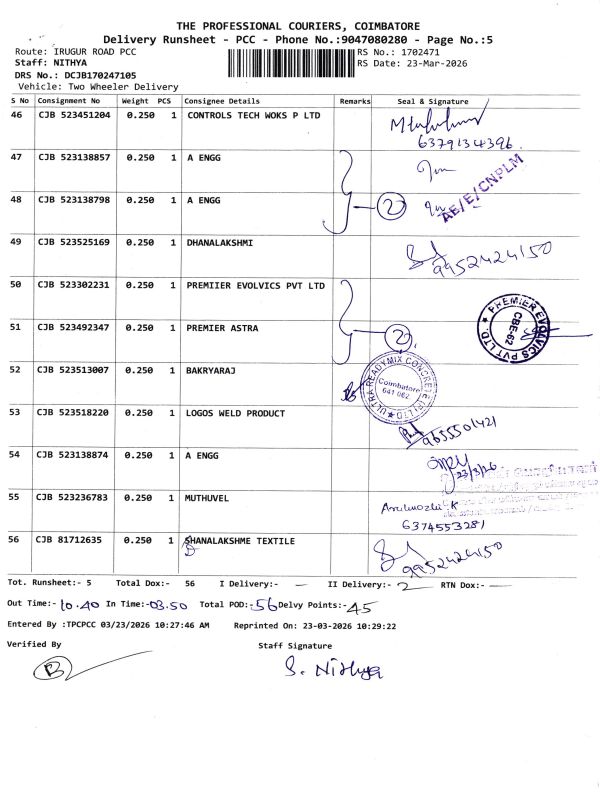 THE PROFESSIONAL COURIERS, COIMBATORE
Delivery Runsheet - PCC - Phone No.:9047080280 - Page No.:5
Route: IRUGUR ROAD PCC
RS No.: 1702471
Staff: NITHYA
RS Date: 23-Mar-2026
DRS No.: DCJB170247105
Vehicle: Two Wheeler Delivery
S No Consignment No Weight PCS Consignee Details Remarks Seal & Signature
46 CJB 523451204 0.250 1 CONTROLS TECH WOKS P LTD
6379134396
47 CJB 523138857 0.250 1 A ENGG
AE/E/CNPLM
48 CJB 523138798 0.250 1 A ENGG 2
49 CJB 523525169 0.250 1 DHANALAKSHMI
9952424150
50 CJB 523302231 0.250 1 PREMIIER EVOLVICS PVT LTD
PREMIER EVOLVICS PVT LTD. CBE-62
51 CJB 523492347 0.250 1 PREMIER ASTRA 2
52 CJB 523513007 0.250 1 BAKRYARAJ
ULTRA READYMIX CONCRETE (P) LTD Coimbatore 641 062
53 CJB 523518220 0.250 1 LOGOS WELD PRODUCT
9655501421
54 CJB 523138874 0.250 1 A ENGG
23/3/26
55 CJB 523236783 0.250 1 MUTHUVEL
Arulmozhi K
6374553281
56 CJB 81712635 0.250 1 SHANALAKSHME TEXTILE
D
9952424150
Tot. Runsheet:- 5 Total Dox:- 56 I Delivery:- — II Delivery:- 2 RTN Dox:- —
Out Time:- 10.40 In Time:- 03.50 Total POD:- 56 Delvy Points:- 45
Entered By :TPCPCC 03/23/2026 10:27:46 AM Reprinted On: 23-03-2026 10:29:22
Verified By Staff Signature
B S. Nithya